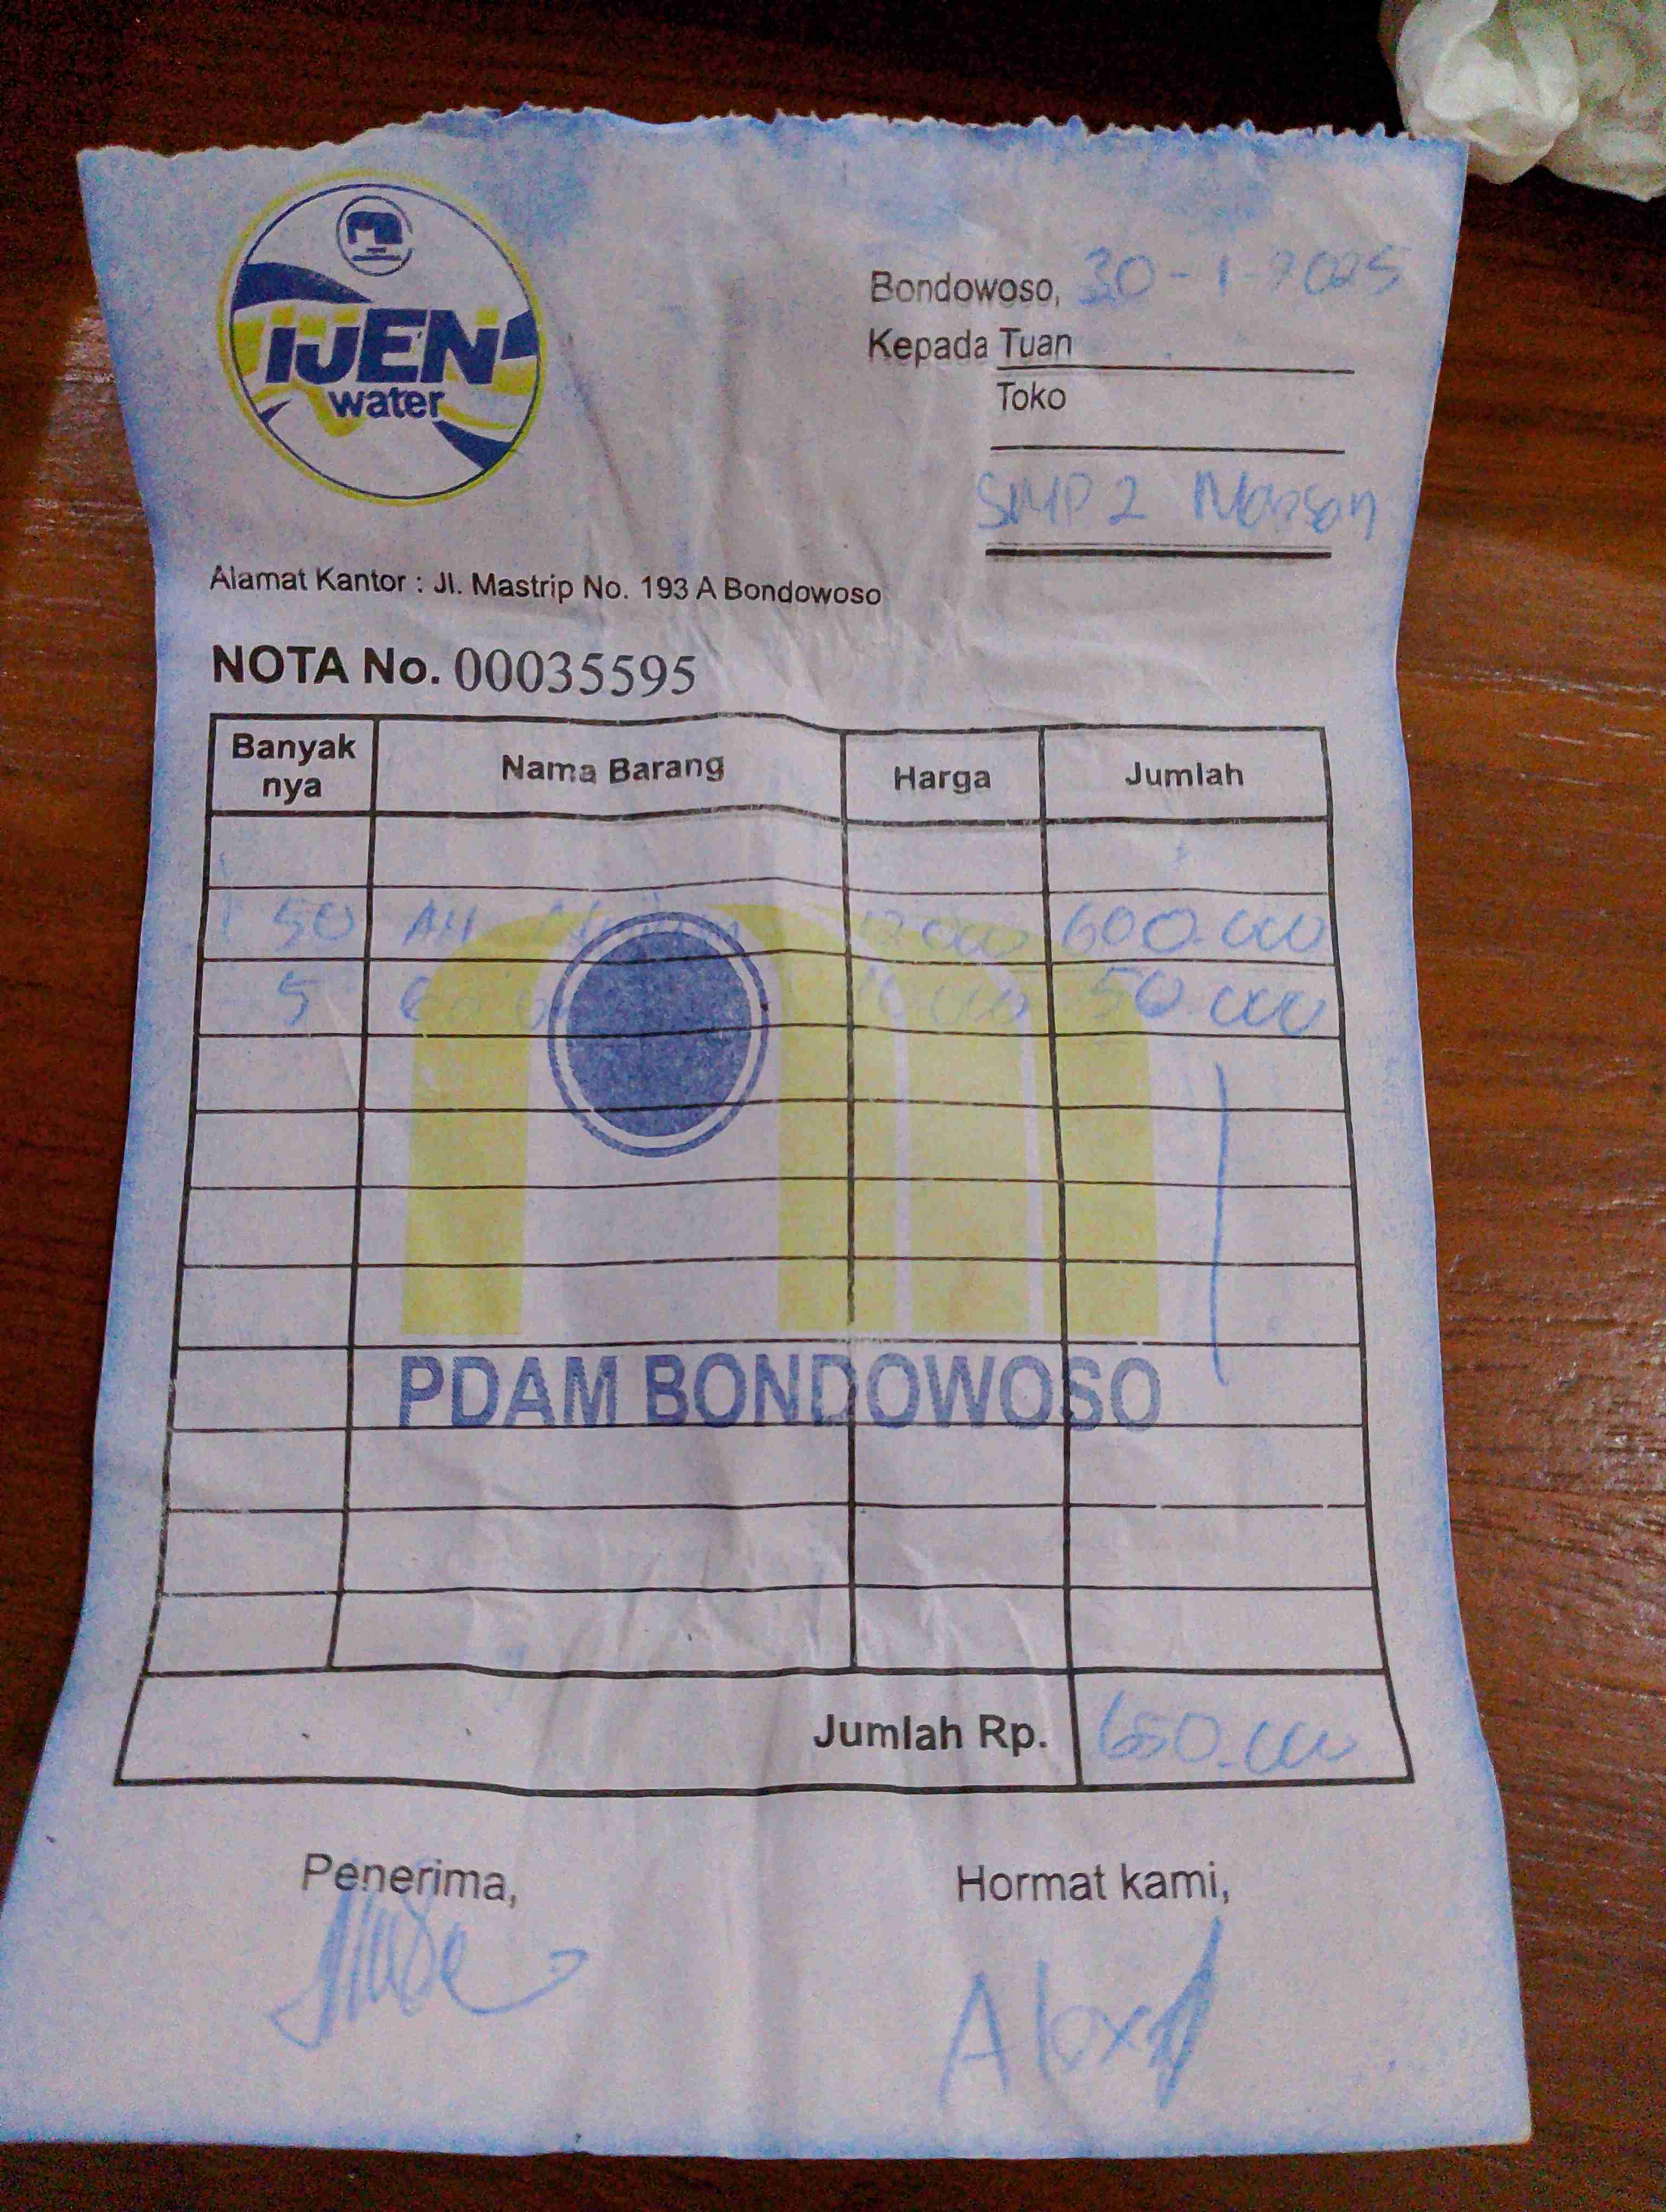 IJEN
water
Bondowoso, 30-1-2025
Kepada Tuan
Toko
SMP 2
Alamat Kantor : Jl. Mastrip No. 193 A Bondowoso
NOTA No. 00035595
Banyak nya Nama Barang Harga Jumlah
50 12000 600.000
5 10.000 50.000
PDAM BONDOWOSO
Jumlah Rp. 650.000
Penerima, Hormat kami,